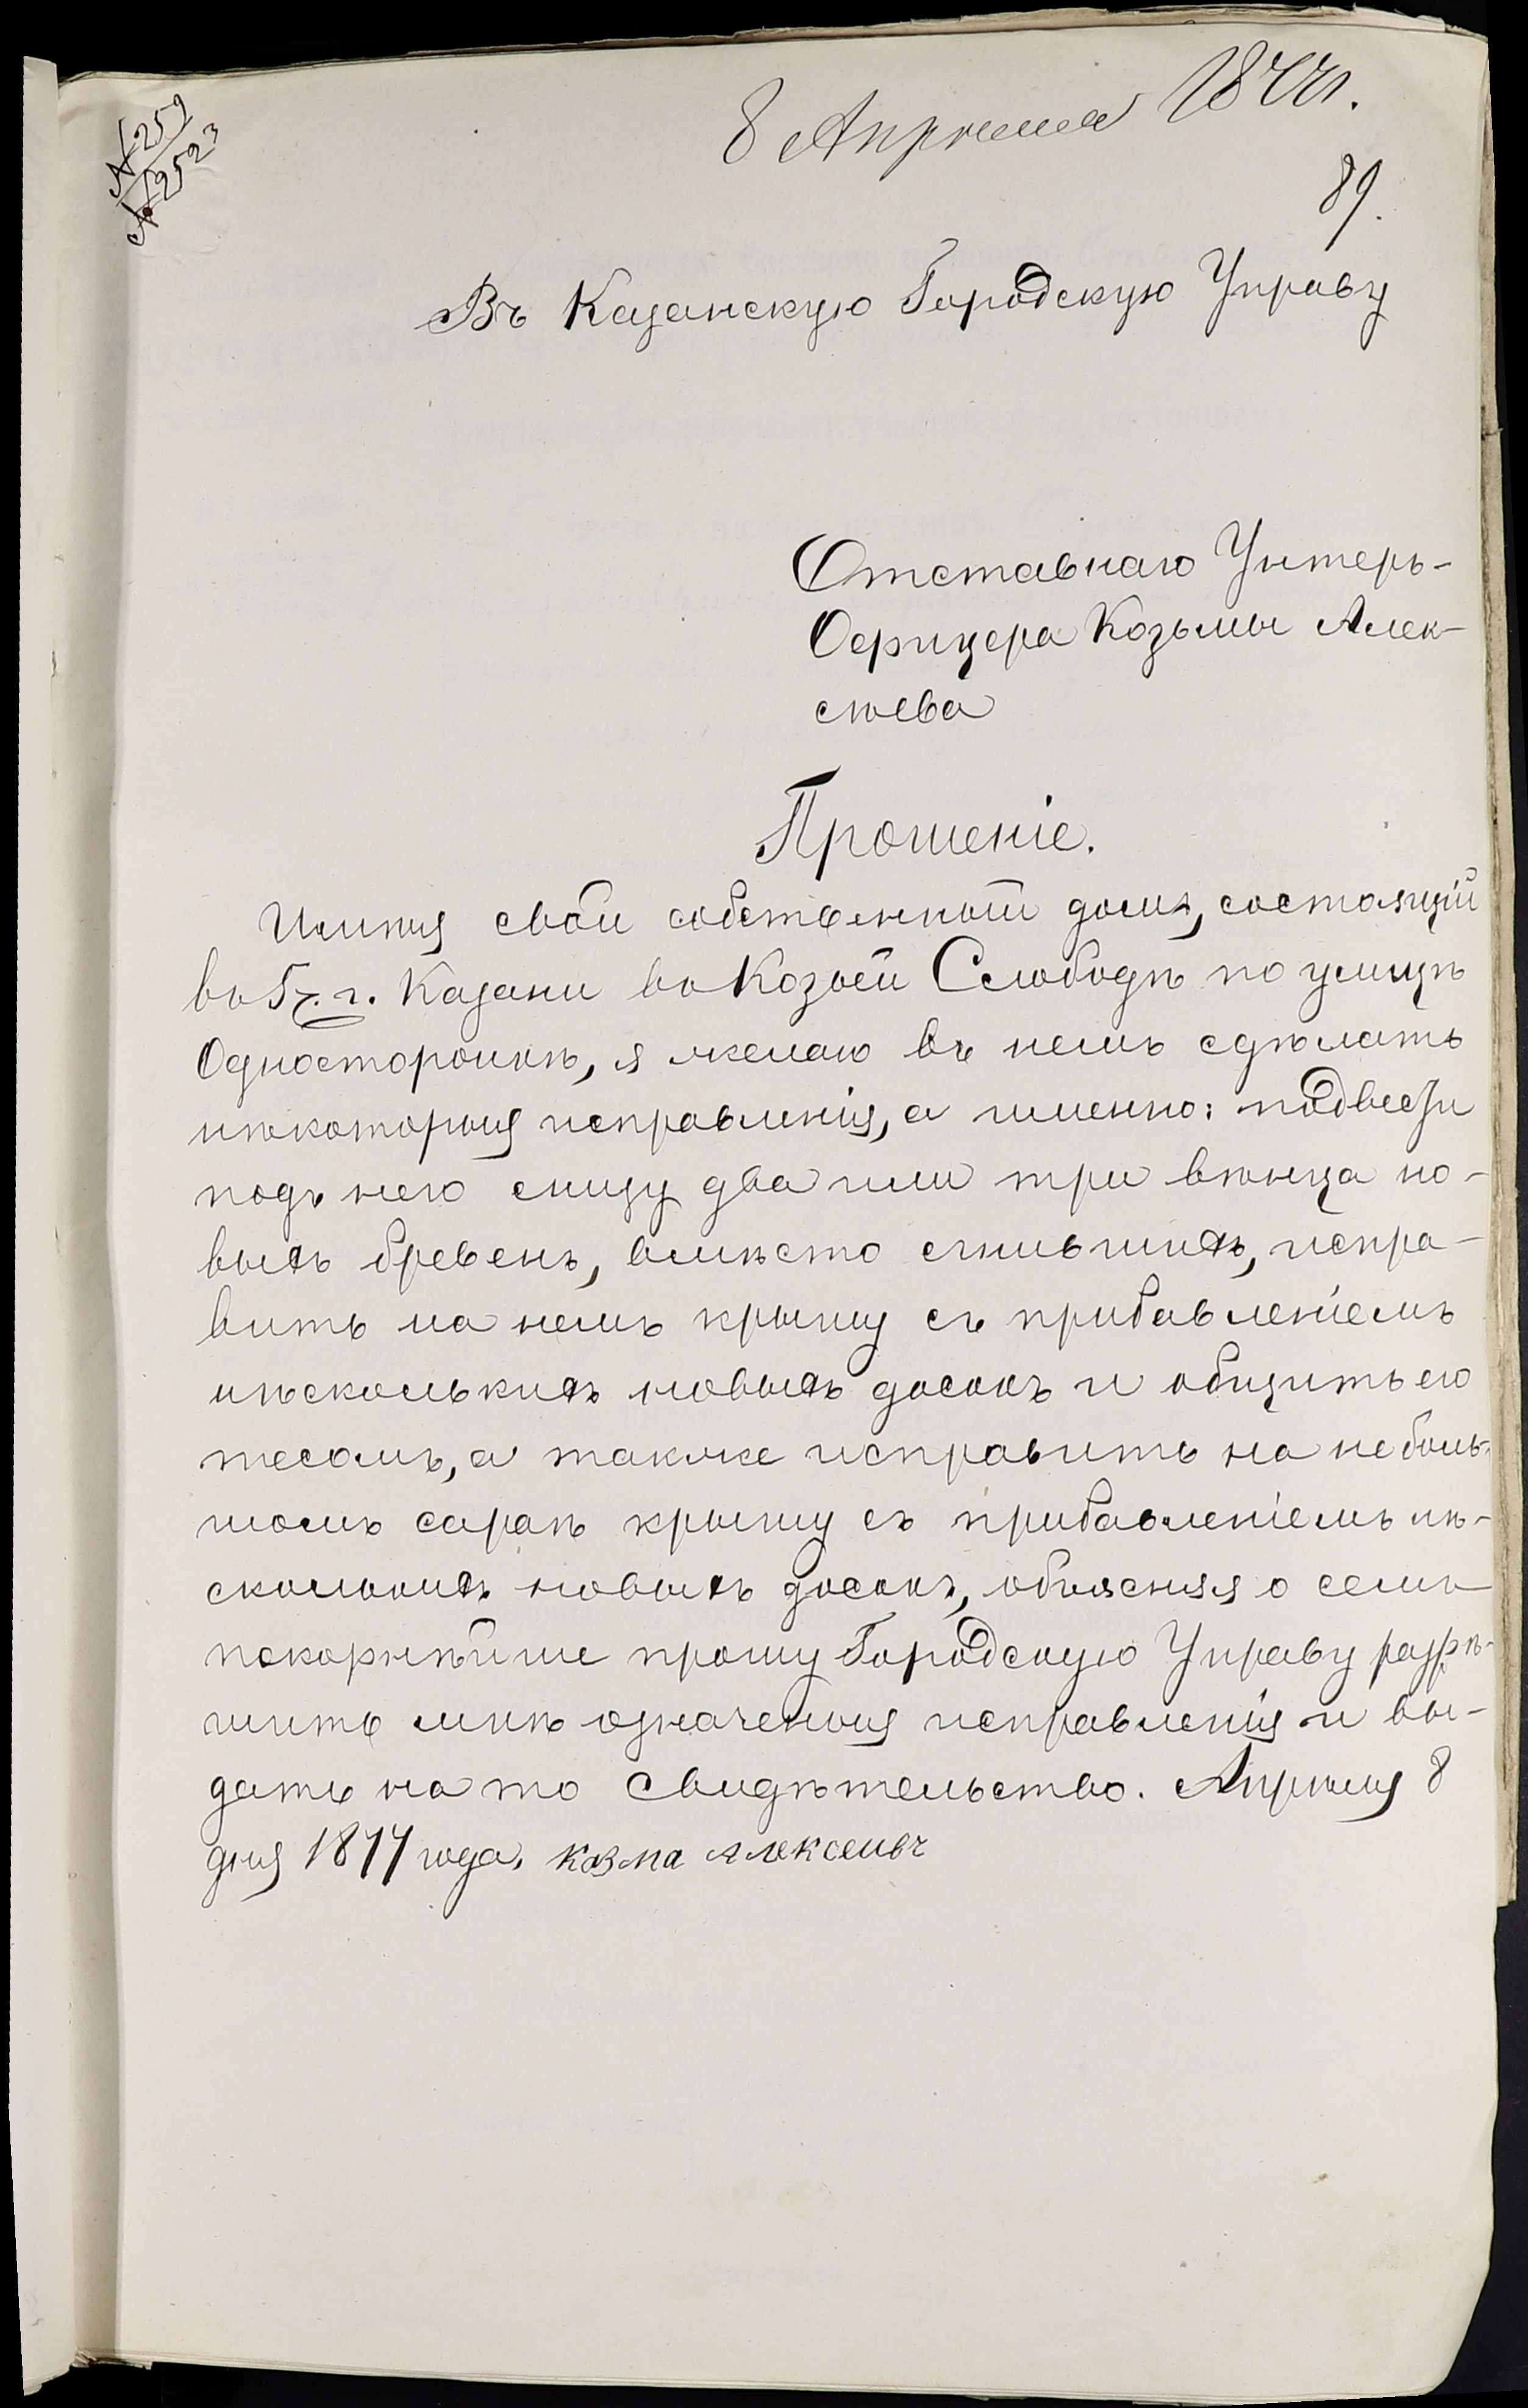 № 259
№ 2523
8 Апрѣля 1877 г.
89.
Въ Казанскую Городскую Управу
Отставнаго Унтеръ-
Офицера Козьмы Алек-
сѣева
Прошеніе.
Имѣя свой собственной домъ, состоящій
въ 5 ч. г. Казани въ Козьей Слободѣ по улицѣ
Односторонкѣ, я желаю въ немъ сдѣлать
нѣкоторыя исправленія, а именно: подвести
подъ него снизу два или три вѣнца но-
выхъ бревенъ, вмѣсто сгнившихъ, испра-
вить на немъ крышу съ прибавленіемъ
нѣсколькихъ новыхъ досокъ и обшить его
тесомъ, а также исправить на неболь-
шомъ сараѣ крышу съ прибавленіемъ нѣ-
сколькихъ новыхъ досокъ, объясняя о семъ
покорнѣйше прошу Городскую Управу разрѣ-
шить мнѣ означеныя исправленія и вы-
дать на то свидѣтельство. Апрѣля 8
дня 1877 года. Козма Алексеивъ